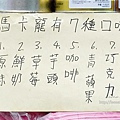 馬卡龍有7種口味
1. 原味
2. 鮮奶
3. 草莓
4. 芋頭
5. 咖啡
6. 青蘋果
7. 巧克力